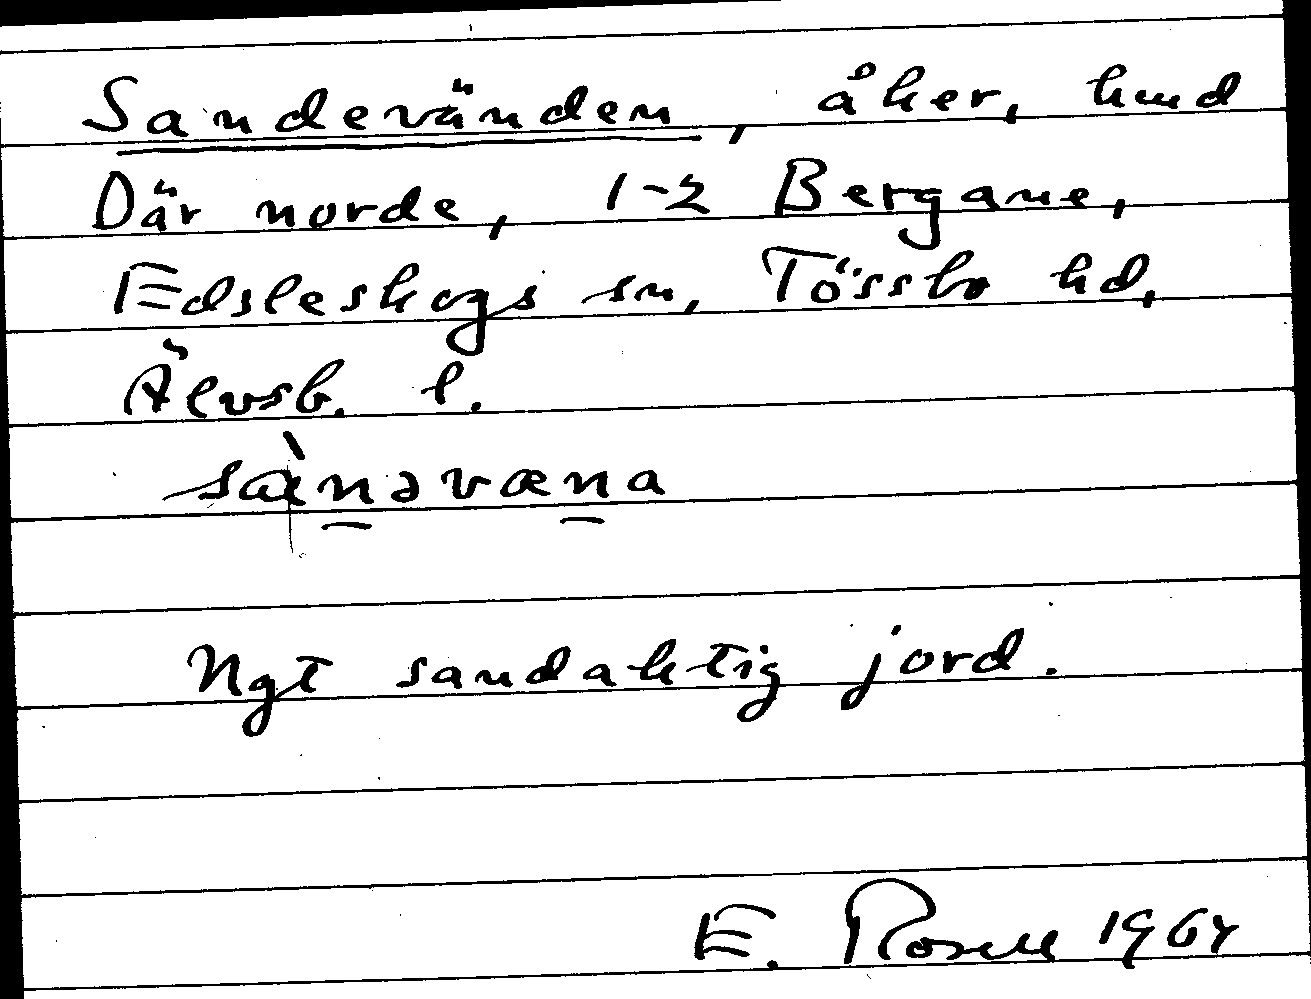 Sandevänden, åker, hmd
Där norde, 1-2 Bergane,
Edsleskogs sn, Tössbo hd,
Älvsb. l.
sànəvæna
Ngt sandaktig jord.
E. Rosell 1964